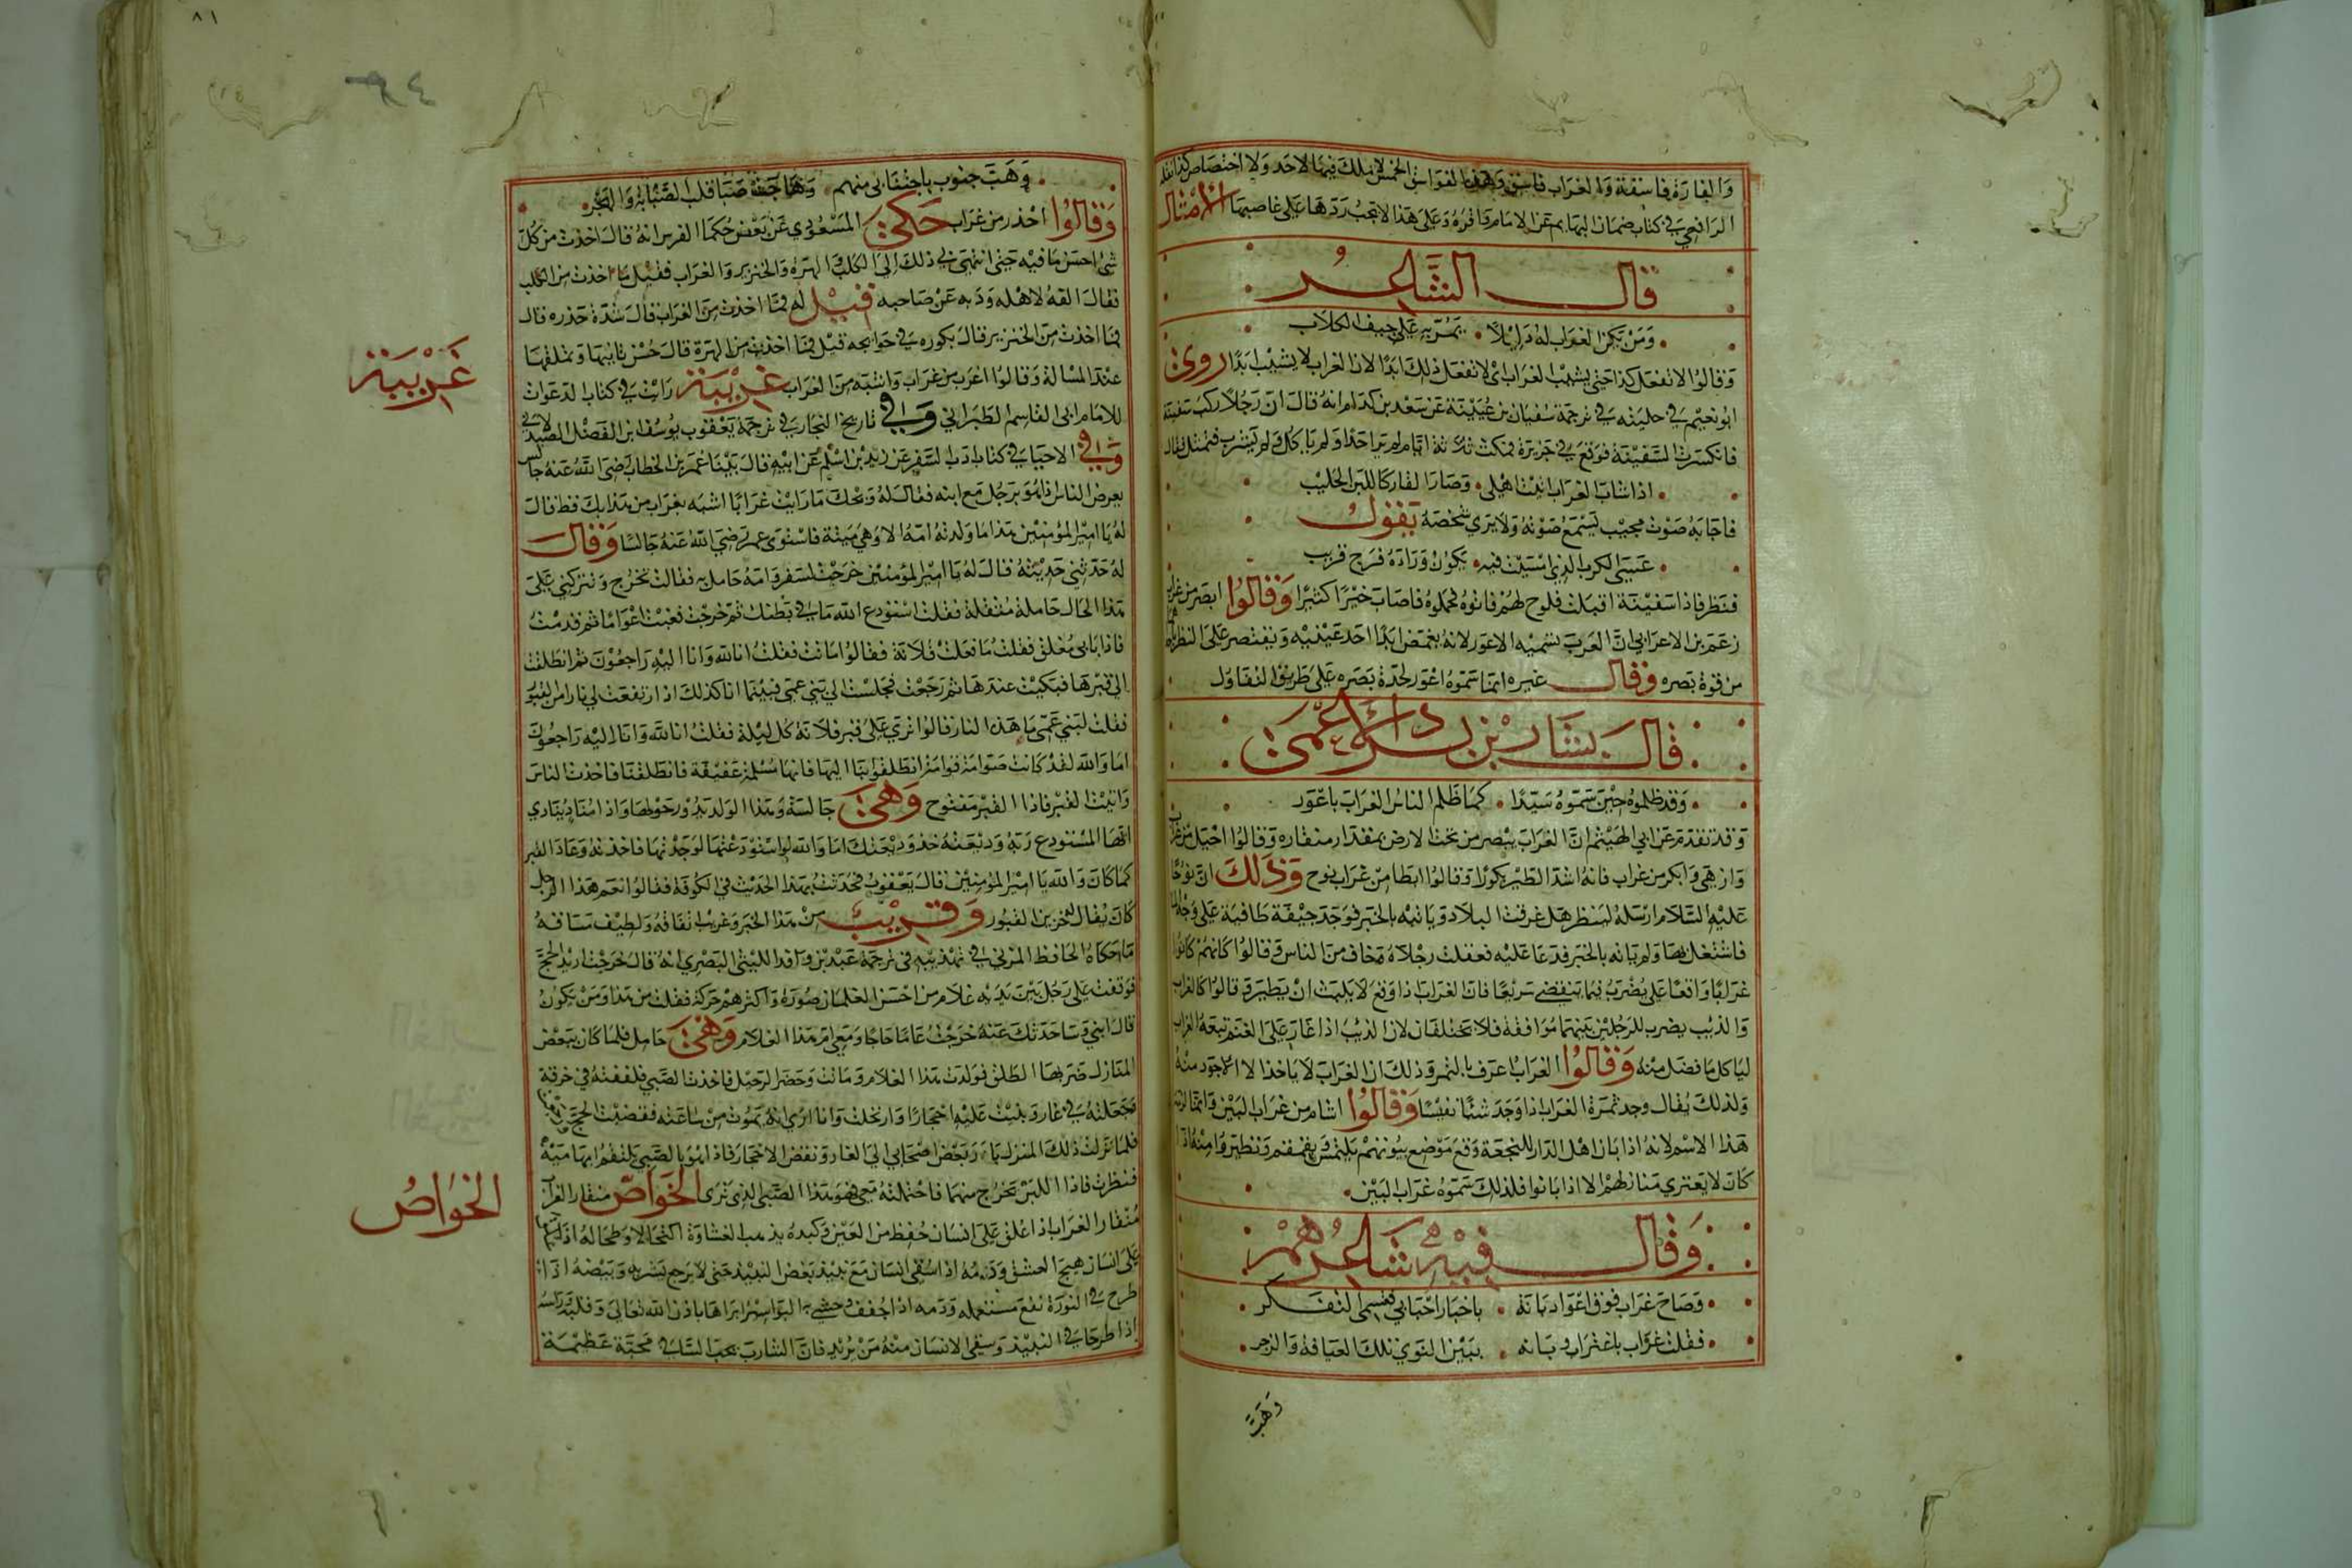 والفارة فاسقة والغراب فاسق وهذه الفواسق الخمس لا ملك فيها لاحد ولا اختصاص كذا نقله
الرافعي في كتاب ضمان البهايم عن الامام واقره وعلى هذا لا يجب ردها على غاصبها الامثال
قال الشاعر
ومن يكن الغراب له دليلا يمر به على جيف الكلاب
وقالوا لا نفعل كذا حتى يشيب الغراب اي لا نفعل ذلك ابدا لان الغراب لا يشيب ابدا روى
ابو نعيم في حليته في ترجمة سفيان بن عيينة عن مسعد بن كدام انه قال ان رجلا ركب سفينة
فانكسرت السفينة فوقع في جزيرة فمكث ثلاثة ايام لم ير احدا ولم ياكل ولم يشرب فتمثل فقال
اذا شاب الغراب اتيت اهلي وصار القار كاللبن الحليب
فاجابه صوت مجيب يسمع صوته ولا يرى شخصه يقول
عسى الكرب الذي امسيت فيه يكون وراءه فرج قريب
فنظر فاذا سفينة اقبلت فلوح لهم فاتوه فحملوه فاصاب خيرا كثيرا وقالوا ابصر من غراب
زعم بن الاعرابي ان العرب تسميه الاعور لانه يغمض ابدا احد عينيه ويقتصر على النظر باحد
من قوة بصره وقال غيره انما سموه اعور لحدة بصره على طريق التفاول
قال بشار بن برد الاعمى
وقد ظلموه حين سموه سيدا كما ظلم الناس الغراب باعور
وقد تقدم عن ابي الهيثم ان الغراب يبصر من تحت الارض بمقدار منقاره وقالوا احيل من غراب
وازهى وابكر من غراب فانه اشد الطير بكورا وقالوا ابطا من غراب نوح وذلك ان نوحا
عليه السلام ارسله لينظر هل غرقت البلاد وياتيه بالخبر فوجد جيفة طافية على وجه الماء
فاشتغل بها ولم ياته بالخبر فدعا عليه فعقلت رجلاه وخاف من الناس وقالوا كانهم كانوا
غرابا واقعا على يضرب فيما ينقضي سريعا فان الغراب اذا وقع لا يلبث ان يطير وقالوا كالغراب
والذيب يضرب للرجلين بينهما موافقة فلا يختلفان لان الذيب اذا اغار على الغنم تبعه الغراب
لياكل ما فضل منه وقالوا الغراب اعرف بالتمر وذلك ان الغراب لا ياخذ الا الاجود منه
ولذلك يقال وجد ثمرة الغراب اذا وجد شيئا نفيسا وقالوا اشام من غراب البين وانما لزمه
هذا الاسم لانه اذا بان اهل الدار للنجعة وقع موضع بيوتهم يلتمس ويقمقم وتطيروا منه اذا
كان لا يعتري منازلهم الا اذا بانوا فلذلك سموه غراب البين
وقال فيه شاعرهم
وصاح غراب فوق اعواد بانة باخبار احبابي فقسمي الفكر
فقلت غراب باغتراب وبانه ببين النوى تلك العيافة والزجر
وهبت
٨١
٩٤
وهبت جنوب باجتنابي منهم وهاجت صبا قلت الصبابة والهجر
وقالوا احذر من غراب حكى المسعودي عن بعض حكما الفرس انه قال اخذت من كل
شي احسن ما فيه حتى انتهى بي ذلك الى الكلب والهرة والخنزير والغراب فقيل ما اخذت من الكلب
فقال الفه لاهله وذبه عن صاحبه قيل له فما اخذت من الغراب قال شدة حذره قال
فما اخذت من الخنزير قال بكوره في حوايجه قيل فما اخذت من الهرة قال حسن تانيها وتملقها
عند المسالة وقالوا اغرب من غراب واشبه من الغراب غريبة رايت في كتاب الدعوات
للامام ابي القاسم الطبراني وفي تاريخ النجار في ترجمة يعقوب يوسف ابن الفضل الصيدلاني
وفي الاحيا في كتاب اداب السفر عن زيد بن اسلم عن ابيه قال بينا عمر بن الخطاب رضي الله عنه جالس
يعرض الناس فاذا هو برجل مع ابنه فقال له ويحك ما رايت غرابا اشبه بغراب من هذا بك قط قال
له يا امير المؤمنين هذا ما ولدته امه الا وهي ميتة فاستوى عمر رضي الله عنه جالسا وقال
له حدثني حديثه قال له يا امير المؤمنين خرجت لسفر وامه حامل به فقالت تخرج وتتركني على
هذا الحال حاملة مثقلة فقلت استودع الله ما في بطنك ثم خرجت فغبت اعواما ثم قدمت
فاذا بابي مغلق فقلت ما فعلت فلانة فقالوا ماتت فقلت انا لله وانا اليه راجعون ثم انطلقت
الى قبرها فبكيت عندها ثم رجعت فجلست الى بني عمي فبينما انا كذلك اذ ارتفعت لي نار من القبور
فقلت لبني عمي ما هذه النار قالوا نرى على قبر فلانة كل ليلة فقلت انا لله وانا اليه راجعون
اما والله لقد كانت صوامة قوامة انطلقوا بنا اليها فانها مسلمة عفيفة فانطلقنا فاخذت الناس
واتيت القبر فاذا القبر مفتوح وهي جالسة وهذا الولد يدور حولها واذا مناد ينادي
ايها المستودع ربه وديعته خذ وديعتك اما والله لو استودعتها لوجدتها فاخذته وعاد القبر
كما كان والله يا امير المؤمنين قال يعقوب فحدثت بهذا الحديث في الكوفة فقالوا نعم هذا الرجل
كان يقال له خزين القبور وقريب من هذا الخبر وغريب اتفاقه ولطيف مساقه
ما حكاه الحافظ المزني في تهذيبه في ترجمة عبيد بن واقد الليثي البصري انه قال خرجت اريد الحج
فوقفت على رجل بين يديه غلام من احسن الغلمان صورة واكثرهم حركة فقلت من هذا ومن يكون
قال ابني وساحدثك عنه خرجت عاما حاجا ومعي ام هذا الغلام وهي حامل فلما كان ببعض
المنازل ضربها الطلق فولدت هذا الغلام وماتت وحضر الرحيل فاخذت الصبي فلففته في خرقة
فجعلته في غار وبنيت عليه احجارا وارتحلت وانا ارى انه يموت من ساعته فقضيت الحج
فلما نزلت ذلك المنزل بادر بعض اصحابي الى الغار ونقض الاحجار فاذا هو بالصبي يلتقم ابهاميه
فنظرت فاذا اللبن يخرج منهما فاحتملته معي فهو هذا الصبي الذي ترى الخواص منقار الغراب
منقار الغراب اذا علق على انسان حفظ من العين وكبده يذهب الغشاوة اكتحالا وطحاله اذا
على انسان هيج العشق ودمه اذا سقي انسان مع نبيذ بغض النبيذ حتى لا يرجع يشربه وبيضه اذا
طرح في النورة نفع مستعمله ودمه اذا جفف وحشي به البواسير ابراها باذن الله تعالى وقلبه وراسه
اذا طرحا في النبيذ وسقي الانسان منه من يريد فان الشارب يحب الساقي محبة عظيمة
غريبة
الخواص